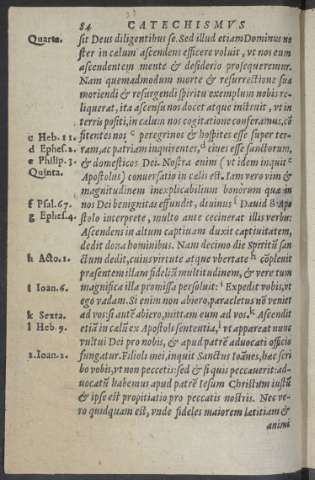 84 CATECHISMVS
Quarta. sit Deus diligentibus se. Sed illud etiam Dominus no
ster in cælum ascendens efficere voluit, vt nos eum
ascendentem mente & desiderio prosequeremur.
Nam quemadmodum morte & resurrectione sua
moriendi & resurgendi spiritu exemplum nobis re-
liquerat, ita ascensu nos docet atque instruit, vt in
terris positi, in cælum nos cogitatione conferamus, cō
c Heb. 11. fitentes nos c peregrinos & hospites esse super ter-
d Ephes. 2. ram, ac patriam inquirentes, d ciues esse sanctorum,
e Philip. 3. & domesticos Dei. Nostra enim (vt idem inquit e
Quinta. Apostolus) conuersatio in cælis est. Iam vero vim &
magnitudinem inexplicabilium bonorum quæ in
f Psal. 67. nos Dei benignitas effundit, diuinus f Dauid g Apo
g Ephes. 4. stolo interprete, multo ante cecinerat illis verbis:
Ascendens in altum captiuam duxit captiuitatem,
dedit dona hominibus. Nam decimo die Spiritū san
h Acto. 1. ctum dedit, cuius virtute atque vbertate h cōpleuit
præsentem illam fideliū multitudinem, & vere tum
i Ioan. 6. magnifica illa promissa persoluit: i Expedit vobis, vt
ego vadam. Si enim non abiero, paracletus nō veniet
k Sexta. ad vos: si autē abiero, mittam eum ad vos. k Ascendit
l Heb. 9. etiā in cælū ex Apostoli sententia, l vt appareat nunc
vultui Dei pro nobis, & apud patrē aduocati officio
1. Ioan. 2. fungatur. Filioli mei, inquit Sanctus Ioānes, hæc scri
bo vobis, vt non peccetis: sed & si quis peccauerit: ad-
uocatū habemus apud patrē Iesum Christum iustū
& ipse est propitiatio pro peccatis nostris. Nec ve-
ro quidquam est, vnde fideles maiorem lætitiam &
animi